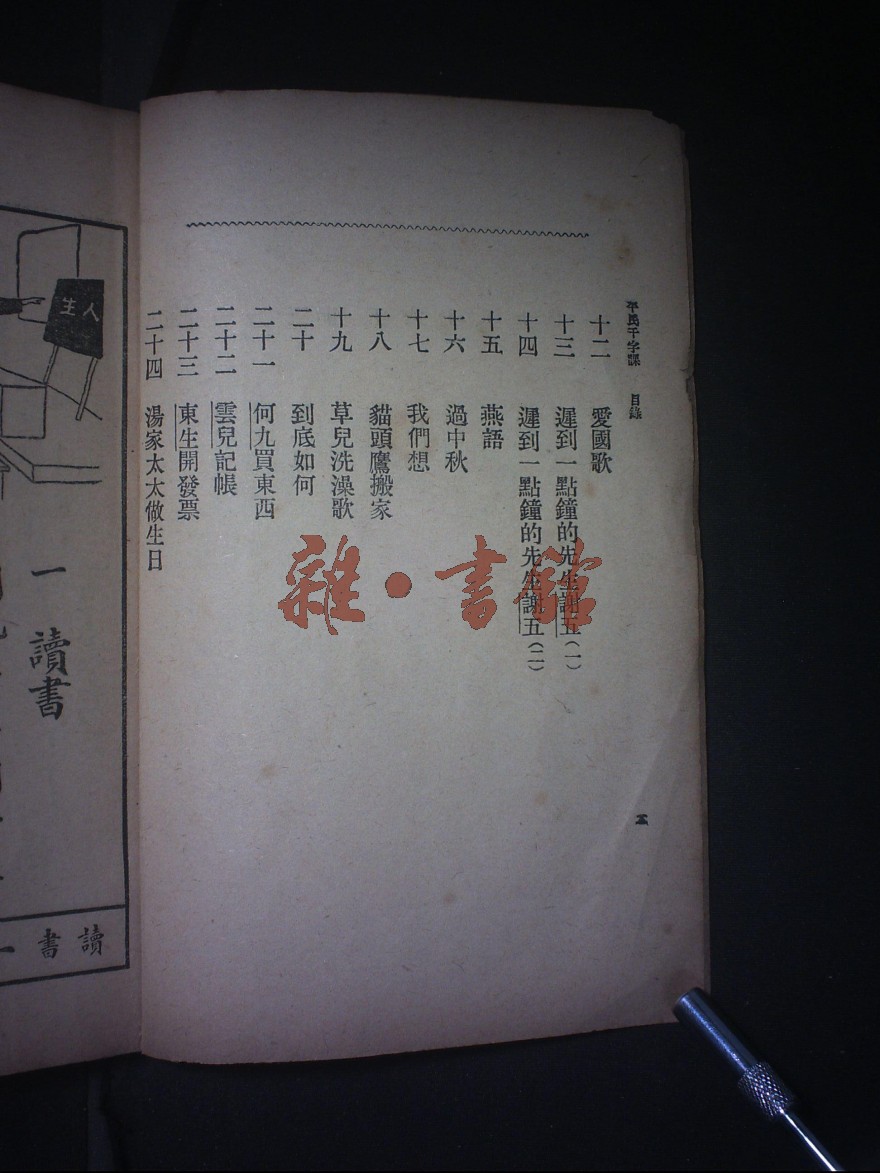 平民千字課 目錄
十二 愛國歌
十三 遲到一點鐘的先生謝五(一)
十四 遲到一點鐘的先生謝五(二)
十五 燕語
十六 過中秋
十七 我們想
十八 貓頭鷹搬家
十九 草兒洗澡歌
二十 到底如何
二十一 何九買東西
二十二 雲兒記帳
二十三 東生開發票
二十四 湯家太太做生日
雜·書館
人生
一 讀書
讀書一